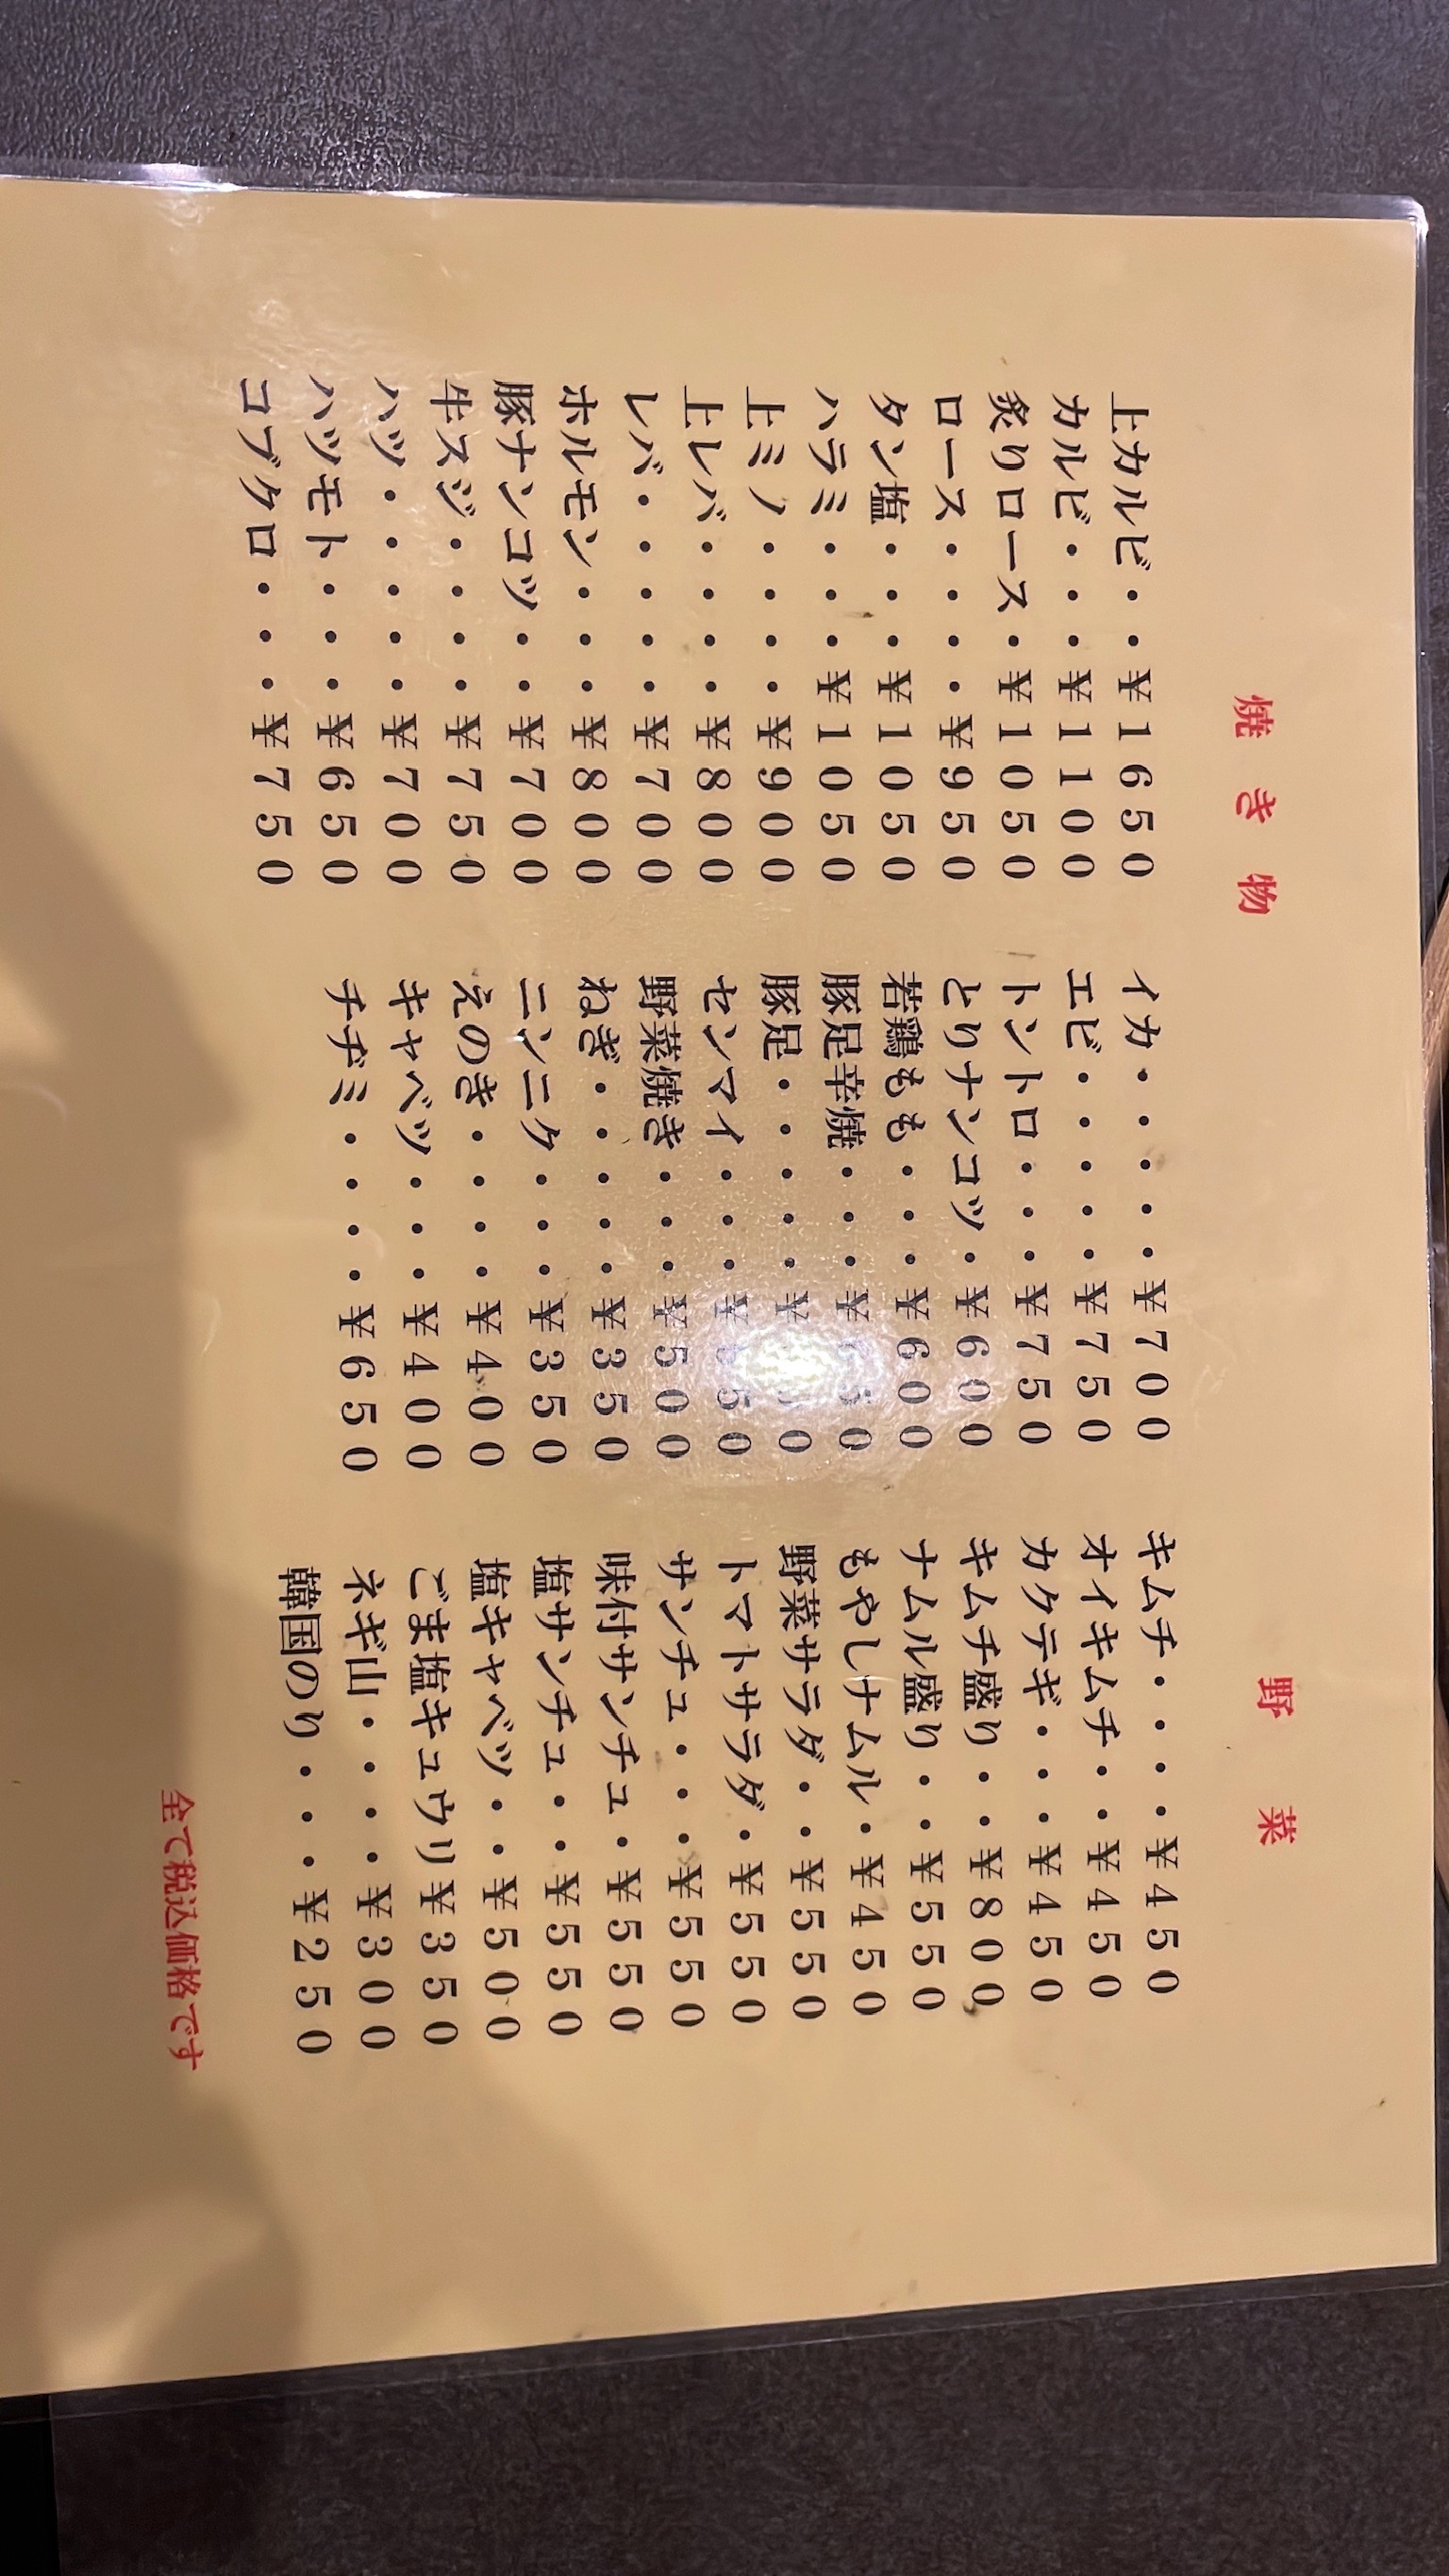 焼き物
上カルビ・・¥1650
カルビ・・・¥1100
炙りロース・¥1050
ロース・・・・¥950
タン塩・・・¥1050
ハラミ・・・¥1050
上ミノ・・・・¥900
上レバ・・・・¥800
レバ・・・・・¥700
ホルモン・・・¥800
豚ナンコツ・・¥700
牛スジ・・・・¥750
ハツ・・・・・¥700
ハツモト・・・¥650
コブクロ・・・¥750
イカ・・・・・¥700
エビ・・・・・¥750
トントロ・・・¥750
とりナンコツ・¥600
若鶏もも・・・¥600
豚足辛焼・・・
豚足・・・・・
センマイ・・・
野菜焼き・・・¥500
ねぎ・・・・・¥350
ニンニク・・・¥350
えのき・・・・¥400
キャベツ・・・¥400
チヂミ・・・・¥650
野菜
キムチ・・・・¥450
オイキムチ・・¥450
カクテギ・・・¥450
キムチ盛り・・¥800
ナムル盛り・・¥550
もやしナムル・¥450
野菜サラダ・・¥550
トマトサラダ・¥550
サンチュ・・・¥550
味付サンチュ・¥550
塩サンチュ・・¥550
塩キャベツ・・¥500
ごま塩キュウリ¥350
ネギ山・・・・¥300
韓国のり・・・¥250
全て税込価格です